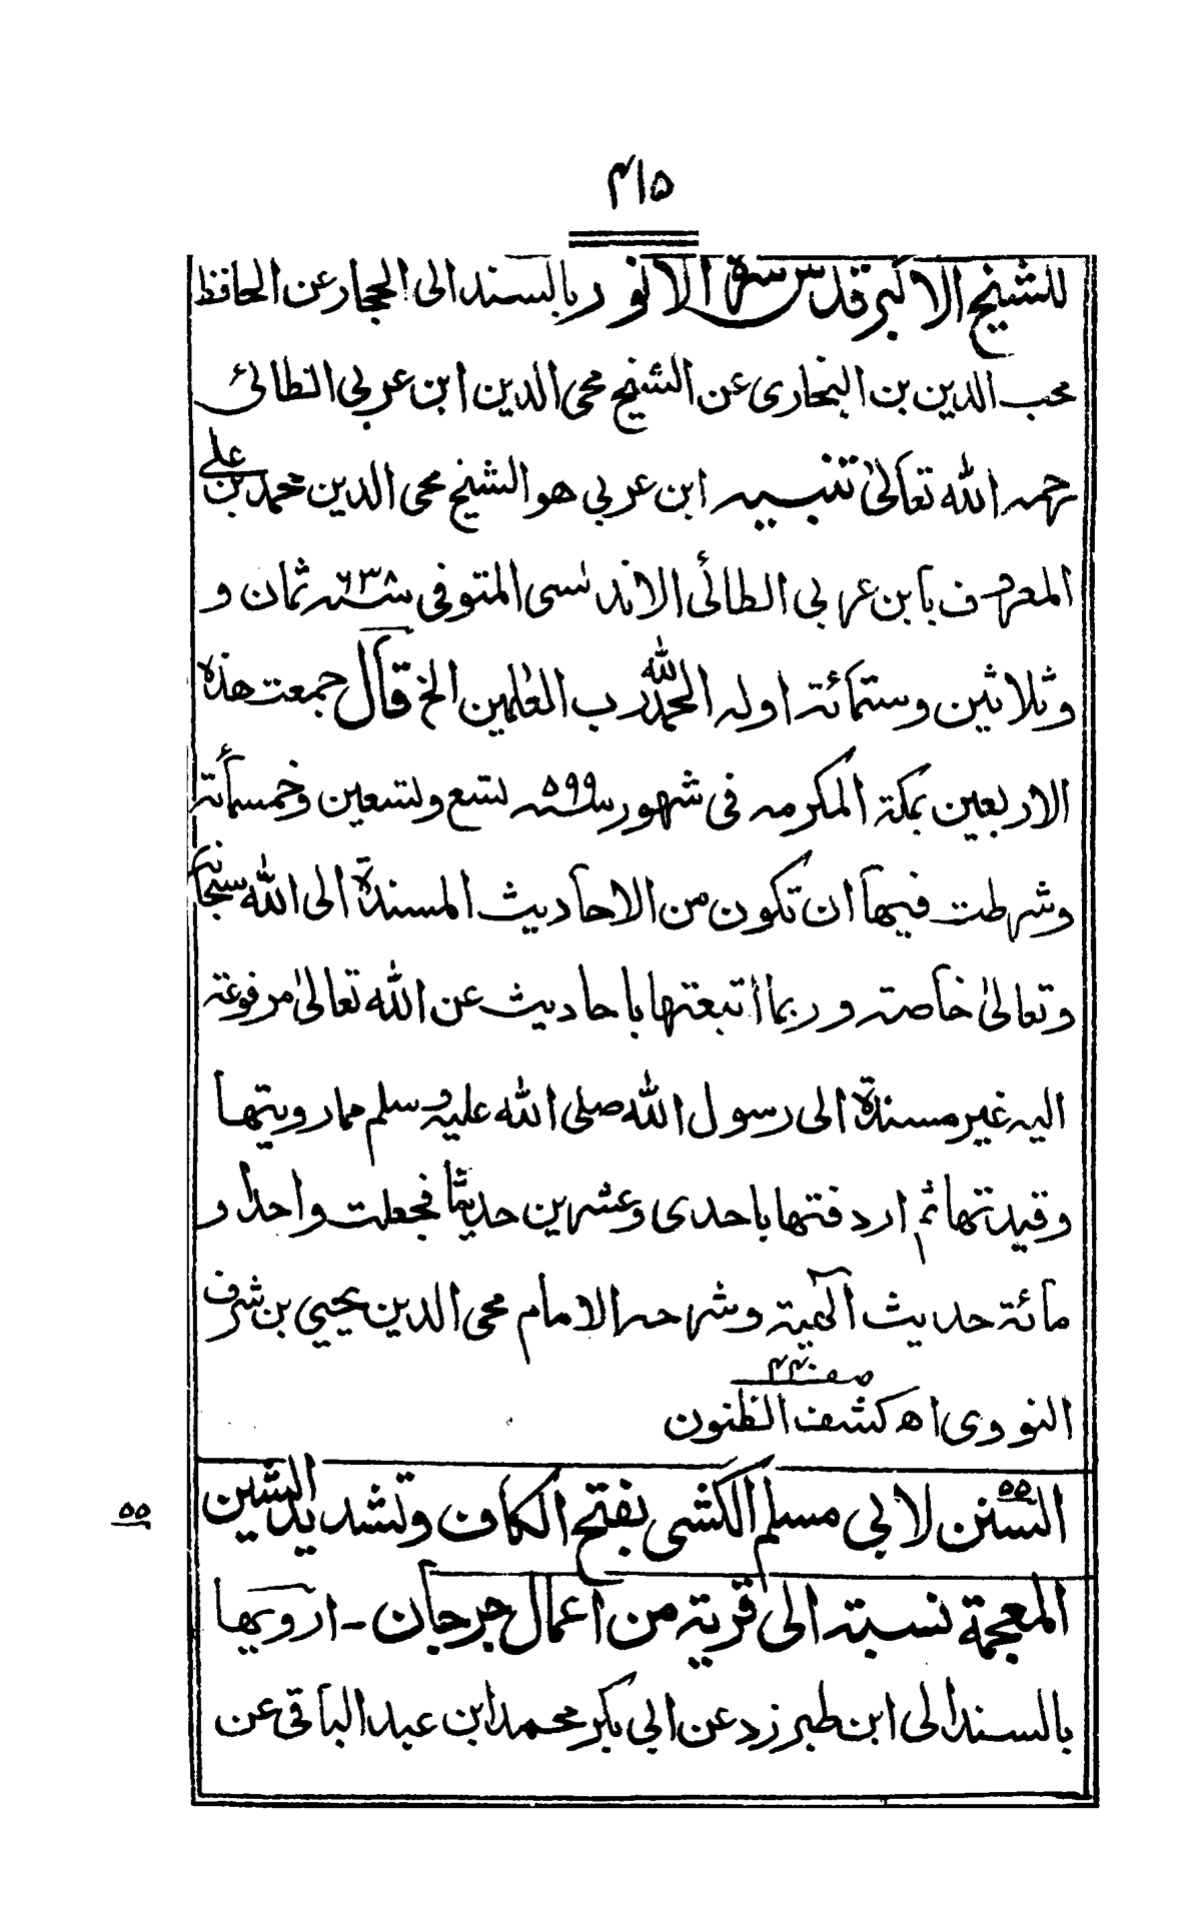 ۴۱۵
للشيخ الاكبر قدس سره الانور بالسند الى الحجار عن الحافظ
محب الدين بن النجارى عن الشيخ محى الدين ابن عربى الطائى
رحمه الله تعالىٰ تنبيه ابن عربي هو الشيخ محى الدين محمد بن على
المعروف بابن عربي الطائى الاندلسى المتوفى سنه ٦٣٨ ثمان و
وثلاثين وستمائة اوله الحمد لله رب العٰلمين الخ قال جمعت هذه
الاربعين بمكة المكرمه فى شهور سنه ٥٩٩ تسع وتسعين وخمسمأئة
وشرطت فيها ان تكون من الاحاديث المسندة الى الله سبحانه
وتعالىٰ خاصته وربما اتبعتها باحاديث عن الله تعالىٰ مرفوعة
اليه غير مسندة الى رسول الله صلى الله عليه وسلم مما رويتها
وقيدتها ثم اردفتها باحدى وعشرين حديثا فجعلت واحدا و
مائة حديث الٰهية وشرحه الامام محى الدين يحيي بن شرف
النووى اه كشف الظنون صـ۴۴۰
السنن لابي مسلم الكشى بفتح الكاف وتشديد الشين
۵۵
المعجمة نسبة الى قرية من اعمال جرجان ـ ارويها
بالسند الى ابن طبرزد عن ابي بكر محمد ابن عبد الباقى عن